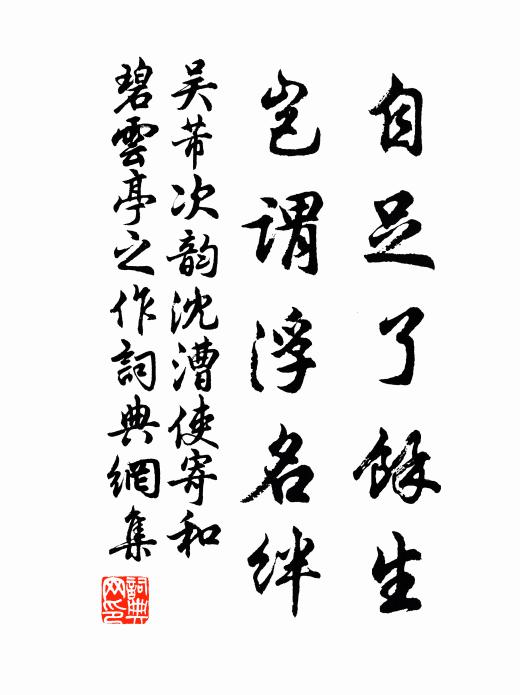 自足了餘生
豈謂浮名絆
吳芾次韵沈漕使寄和
碧雲亭之作詞典網集
詞典网印